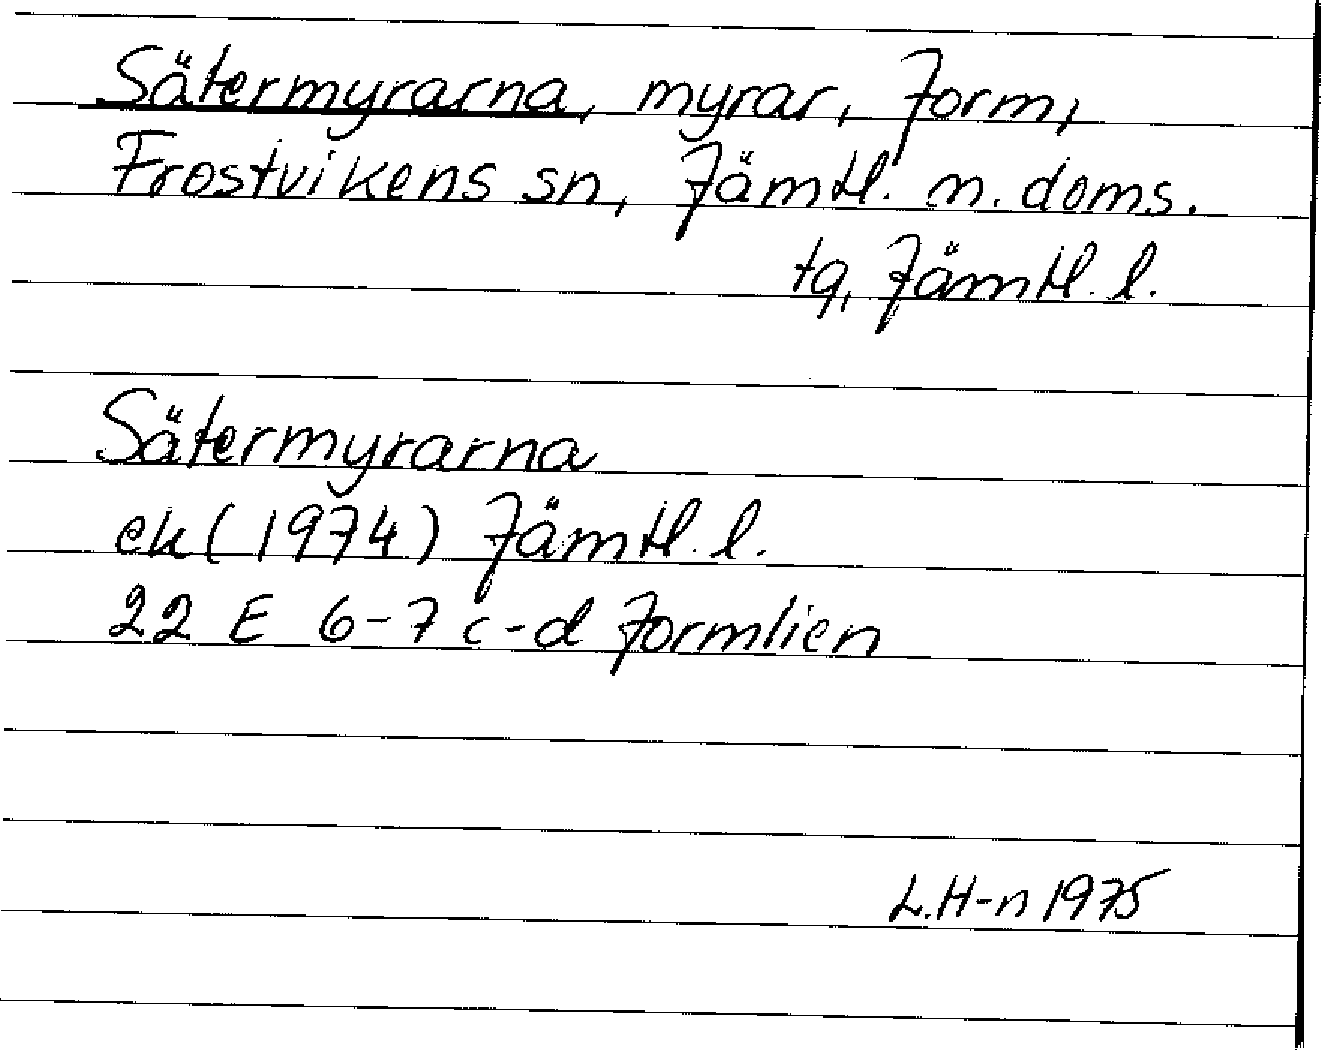 Sätermyrarna, myrar, Jorm,
Frostvikens sn, Jämtl. n. doms.
tq, Jämtl. l.
Sätermyrarna
ek (1974) Jämtl. l.
22 E 6-7 c-d Jormlien
L.H-n 1975